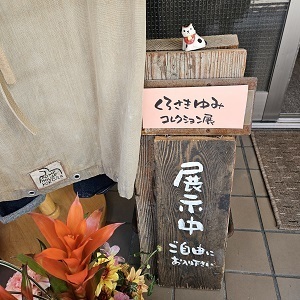 くろさきゆみ
コレクション展
展示中
ご自由に
お入り下さい